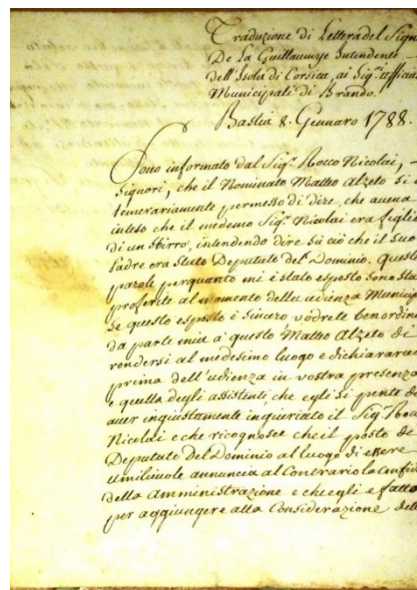 Traduzione di Lettera del Sign
De La Guillaumye Intendente
dell'Isola di Corsica, ai Sig.ri uffician
Municipali di Brando.
Bastia 8. Gennaro 1788.
Sono informato dal Sig.r Rocco Nicolai, -
Signori, che il Nominato Matteo Alzeto si è
temerariamente permesso di dire, che aueua
inteso che il medemo Sig.r Nicolai era figlio
di un sbirro, intendendo dire su ciò che il suo
Padre era stato Deputato del Dominio. Queste
parole per quanto mi è stato esposto sono sta
proferite al momento della udienza Municip
Se questo esposto è sincero vodrete ben ordina
da parte mia a questo Matteo Alzeto di
rendersi al medesimo luogo e dichiarara
prima dell'udienza in vostra presenza
e quella degli assistenti, che egli si pente de
auer ingiustamente ingiuriato il Sig.r Rocc
Nicolai e che ricognosce che il posto de
Deputato del Dominio al luogo di essere
umiliuole annuncia al Contrario la confid
della Amministrazione e che egli e fatto
per aggiungere alla Considerazione dell